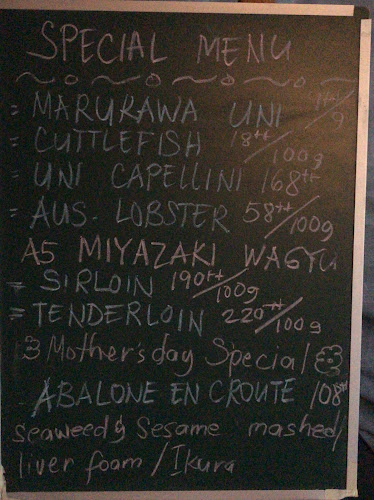 SPECIAL MENU
= MARUKAWA UNI /g
= CUTTLEFISH 18++/100g
= UNI CAPELLINI 168++
= AUS. LOBSTER 58++/100g
A5 MIYAZAKI WAGYU
= SIRLOIN 190++/100g
= TENDERLOIN 220++/100g
Mother's day Special
ABALONE EN CROUTE 108++
seaweed & Sesame mashed/
liver foam / Ikura